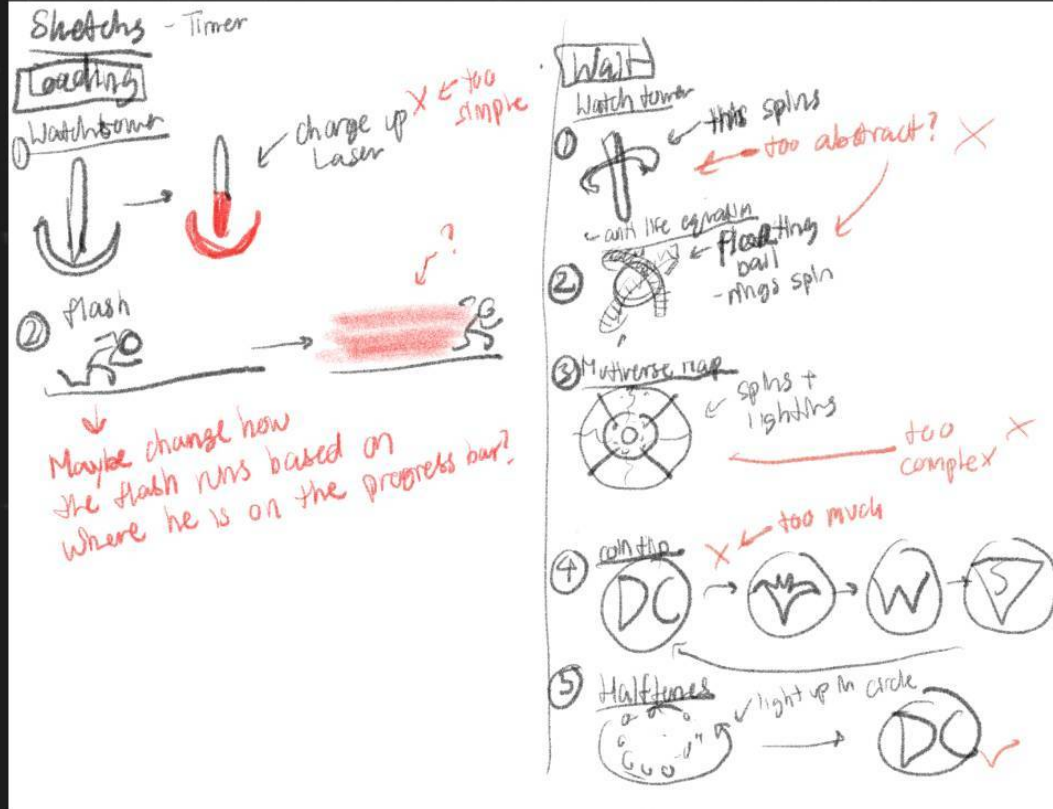 Sketchs - Timer
Loading
① Watchtower
charge up
Laser
X ← too
simple
② flash
?
Maybe change how
the flash runs based on
where he is on the progress bar?
Wait
Watch tower
①
this spins
too abstract? X
anti life equation
②
floating
ball
- rings spin
③ Multiverse map
spins +
lighting
too
complex X
④ coin flip
X ← too much
DC
W
S
⑤ Halftones
light up in circle
DC